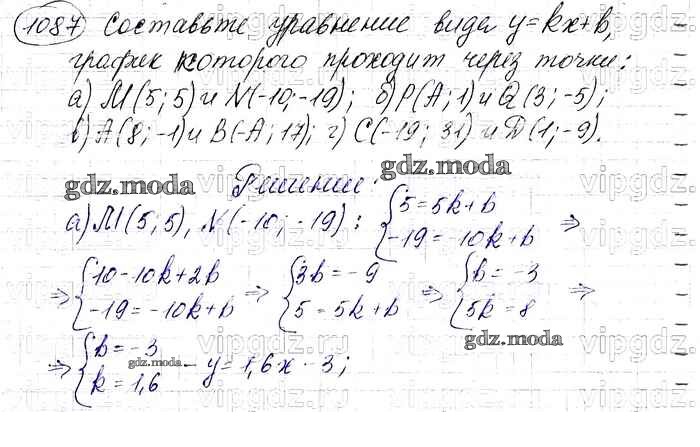 1087 Составьте уравнение вида y=kx+b,
график которого проходит через точки:
а) M(5; 5) и N(-10; -19); б) P(A; 1) и Q(3; -5);
в) A(8; -1) и B(-A; 17); г) C(-19; 31) и D(1; -9).
Решение:
а) M(5; 5), N(-10; -19): {5=5k+b
-19=-10k+b ⇒
⇒ {10=10k+2b
-19=-10k+b ⇒ {3b=-9
5=5k+b ⇒ {b=-3
5k=8 ⇒
⇒ {b=-3
k=1,6 - y=1,6x-3;
gdz.moda
gdz.moda
gdz.moda
gdz.moda
vipgdz.ru